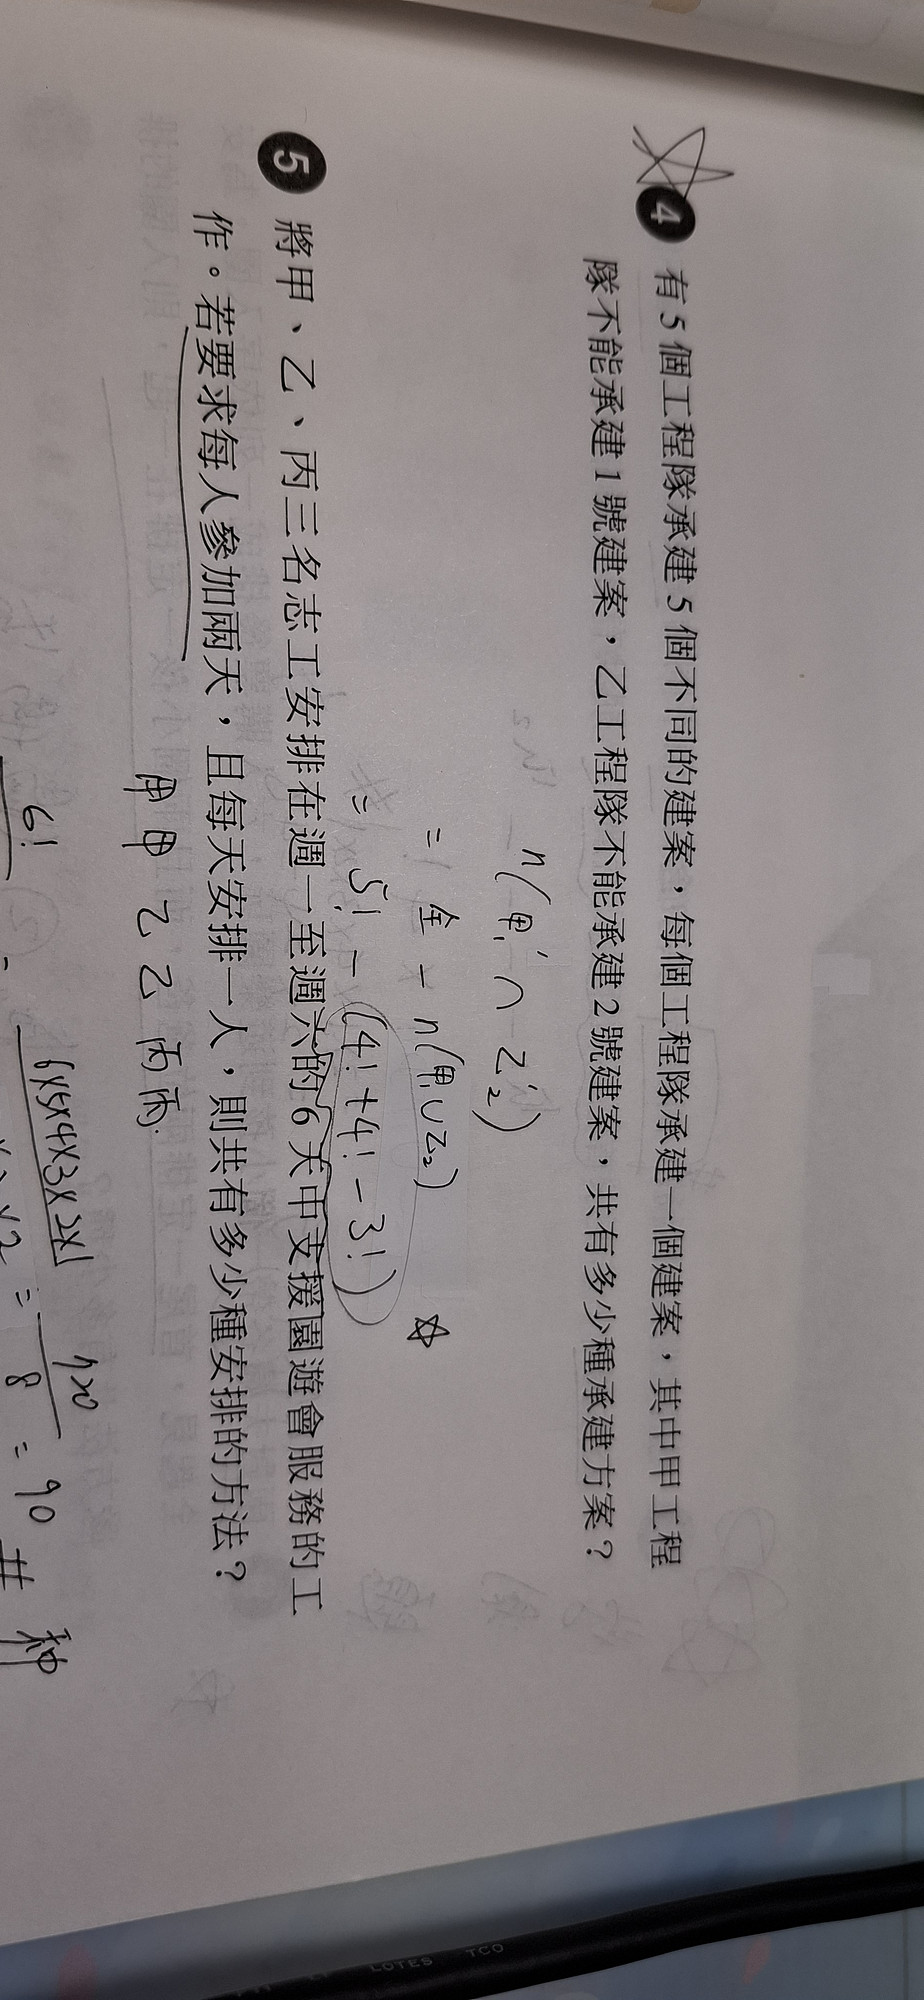 4 有5個工程隊承建5個不同的建案，每個工程隊承建一個建案，其中甲工程
隊不能承建1號建案，乙工程隊不能承建2號建案，共有多少種承建方案？
n(甲₁' ∩ 乙₂')
= 全 - n(甲₁∪乙₂)
= 5! - (4! + 4! - 3!)
5 將甲、乙、丙三名志工安排在週一至週六的6天中支援園遊會服務的工
作。若要求每人參加兩天，且每天安排一人，則共有多少種安排的方法？
甲甲乙乙丙丙
6! = 6×5×4×3×2×1 = 720/8 = 90 # 種
LOTES TCO